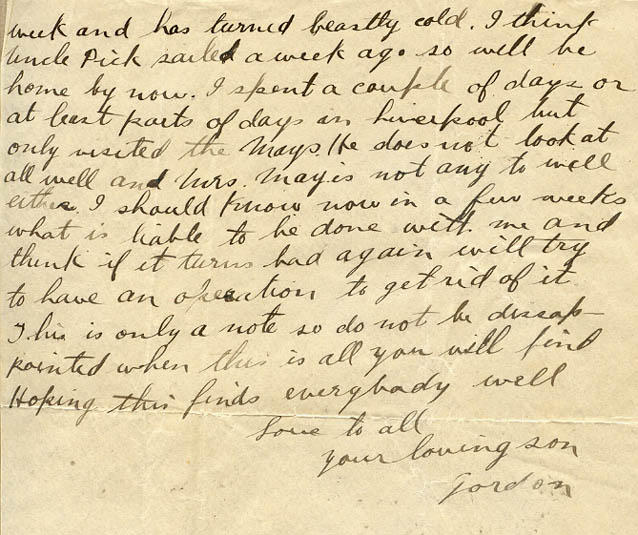 week and has turned beastly cold. I think
Uncle Pick sailed a week ago so will be
home by now. I spent a couple of days or
at least parts of days in Liverpool but
only visited the Mays. He does not look at
all well and Mrs. May is not any to well
either. I should know now in a few weeks
what is liable to be done with me and
think if it turns bad again will try
to have an operation to get rid of it.
This is only a note so do not be dissap-
pointed when this is all you will find
Hoping this finds everybody well
Love to all
Your loving son
Gordon